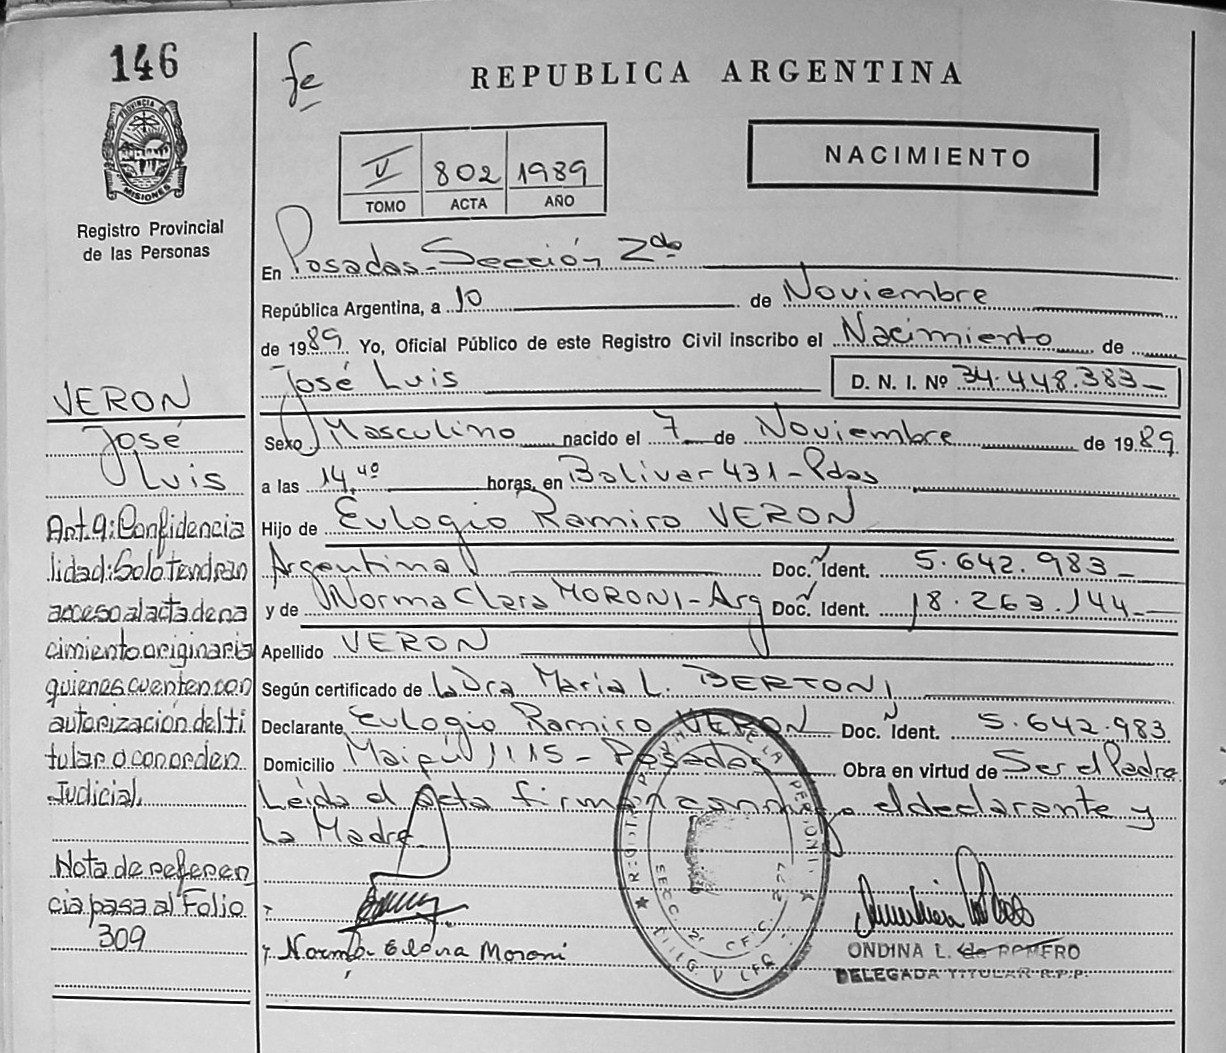 146
fe
REPUBLICA ARGENTINA
PROVINCIA MISIONES
Registro Provincial
de las Personas
V 802 1989
TOMO ACTA AÑO
NACIMIENTO
En Posadas-Sección 2da
República Argentina, a 10 de Noviembre
de 1989 Yo, Oficial Público de este Registro Civil inscribo el Nacimiento de
José Luis D. N. I. Nº 34.448.383-
Sexo Masculino nacido el 7 de Noviembre de 1989
a las 14,40 horas, en Bolivar 431-Pdas
Hijo de Eulogio Ramiro VERON
Argentina Doc. Ident. 5.642.983-
y de Norma Clara MORONI-Arg Doc. Ident. 18.263.144-
Apellido VERON
Según certificado de la Dra Maria L. BERTONI
Declarante Eulogio Ramiro VERON Doc. Ident. 5.642.983
Domicilio Maipú 1115-Posadas Obra en virtud de Ser el Padre
Leída el acta firman conmigo el declarante y
la Madre
VERON
José
Luis
Art.9: Confidencia
lidad: Solo tendran
acceso al acta de na
cimiento originaria
quienes cuenten con
autorización del ti
tular o con orden
Judicial.
Nota de referen
cia pasa al Folio
309
Moroni
ONDINA L. de ROMERO
DELEGADA TITULAR R.P.P.